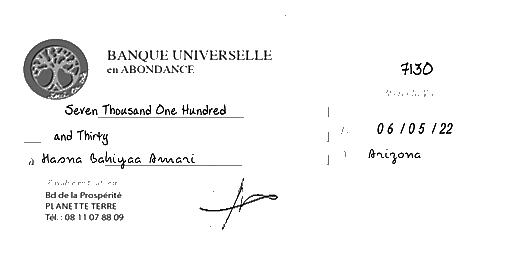 BANQUE UNIVERSELLE
en ABONDANCE
7130
Seven Thousand One Hundred
and Thirty
06/05/22
à Hasna Bahiyaa Amari
Arizona
Bd de la Prospérité
PLANETTE TERRE
Tél. : 08 11 07 88 09